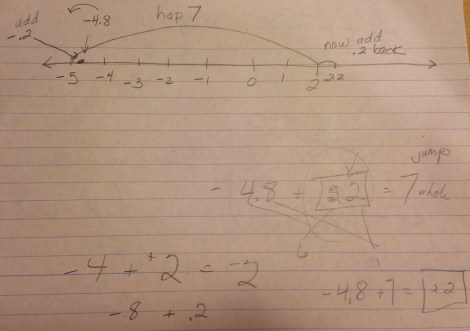 add
-.2
-4.8
hop 7
now add
.2 back
-5 -4 -3 -2 -1 0 1 2 2.2
jumps
- 4.8 + 2 = 7 whole
-4 + +2 = -2
-4.8 + 7 = 2.2
-8 + .2